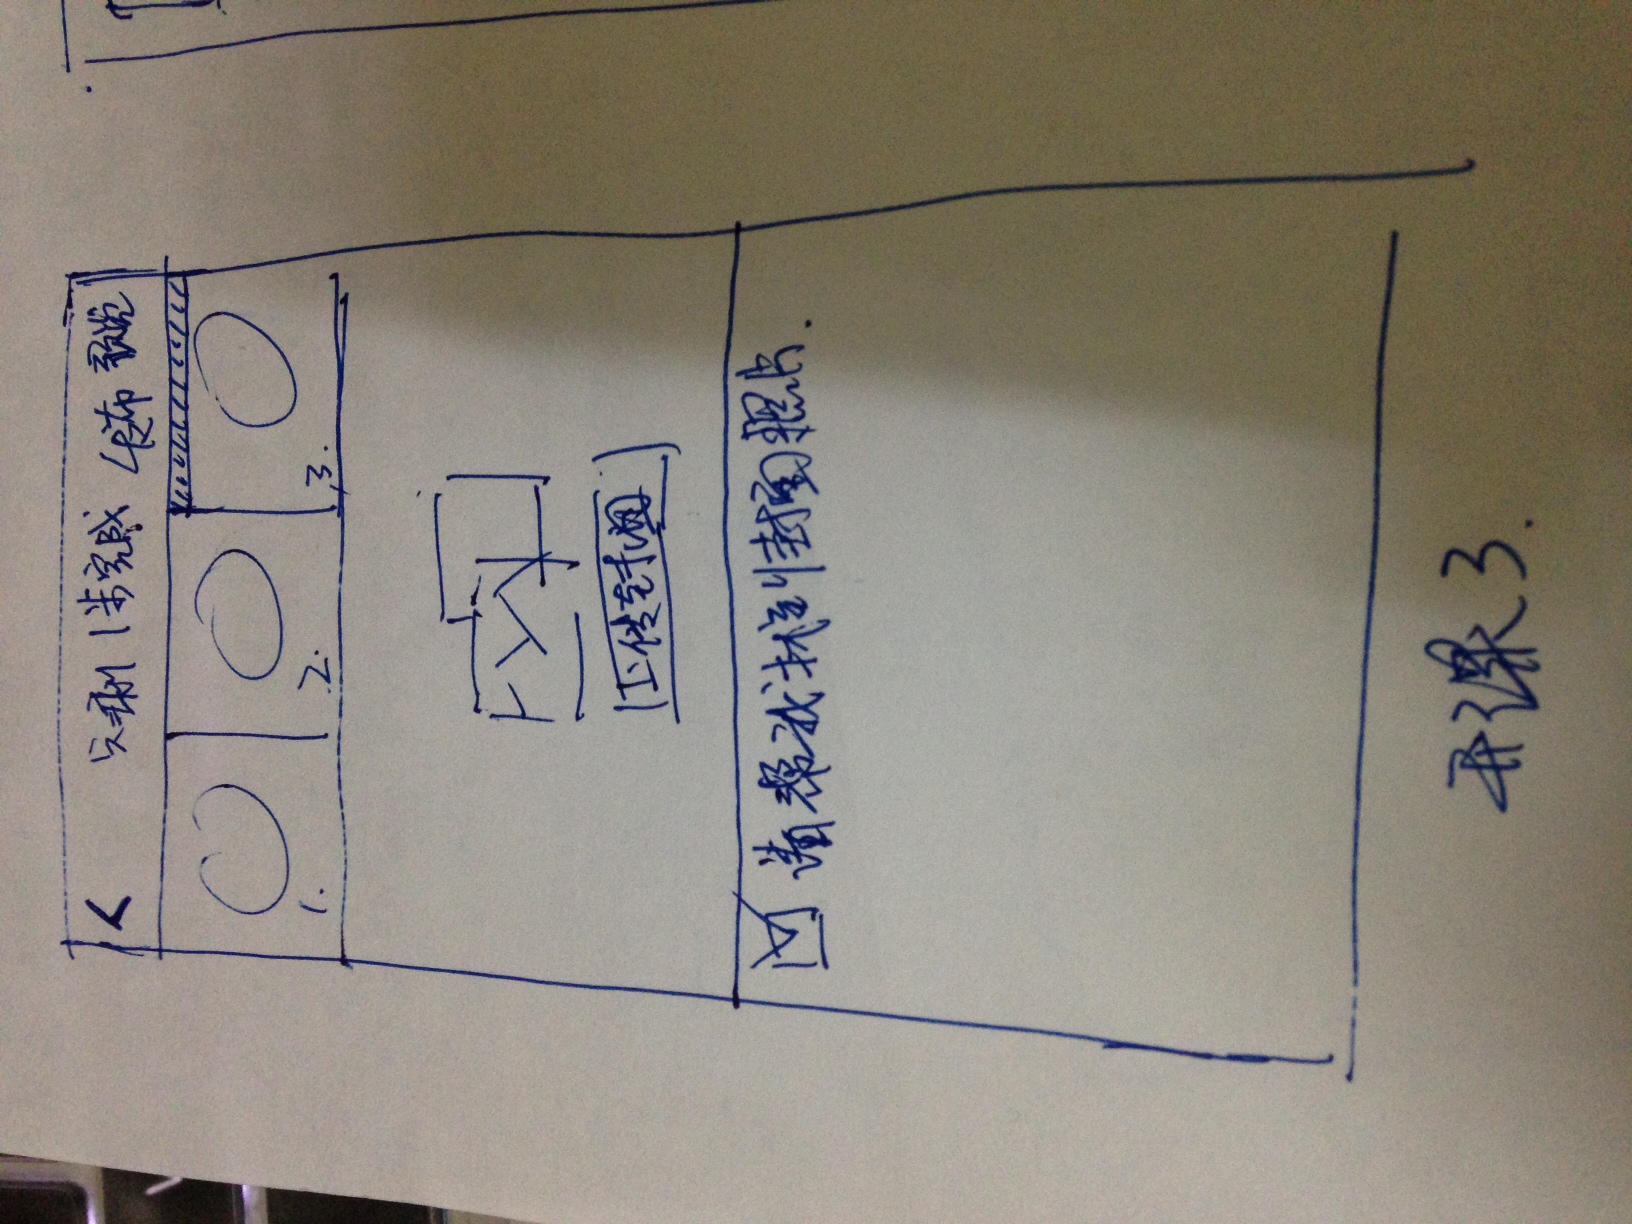 < 只剩1步完成 发布 预览
1. 2. 3.
上传封面
请帮我找到封面照片.
开课3.